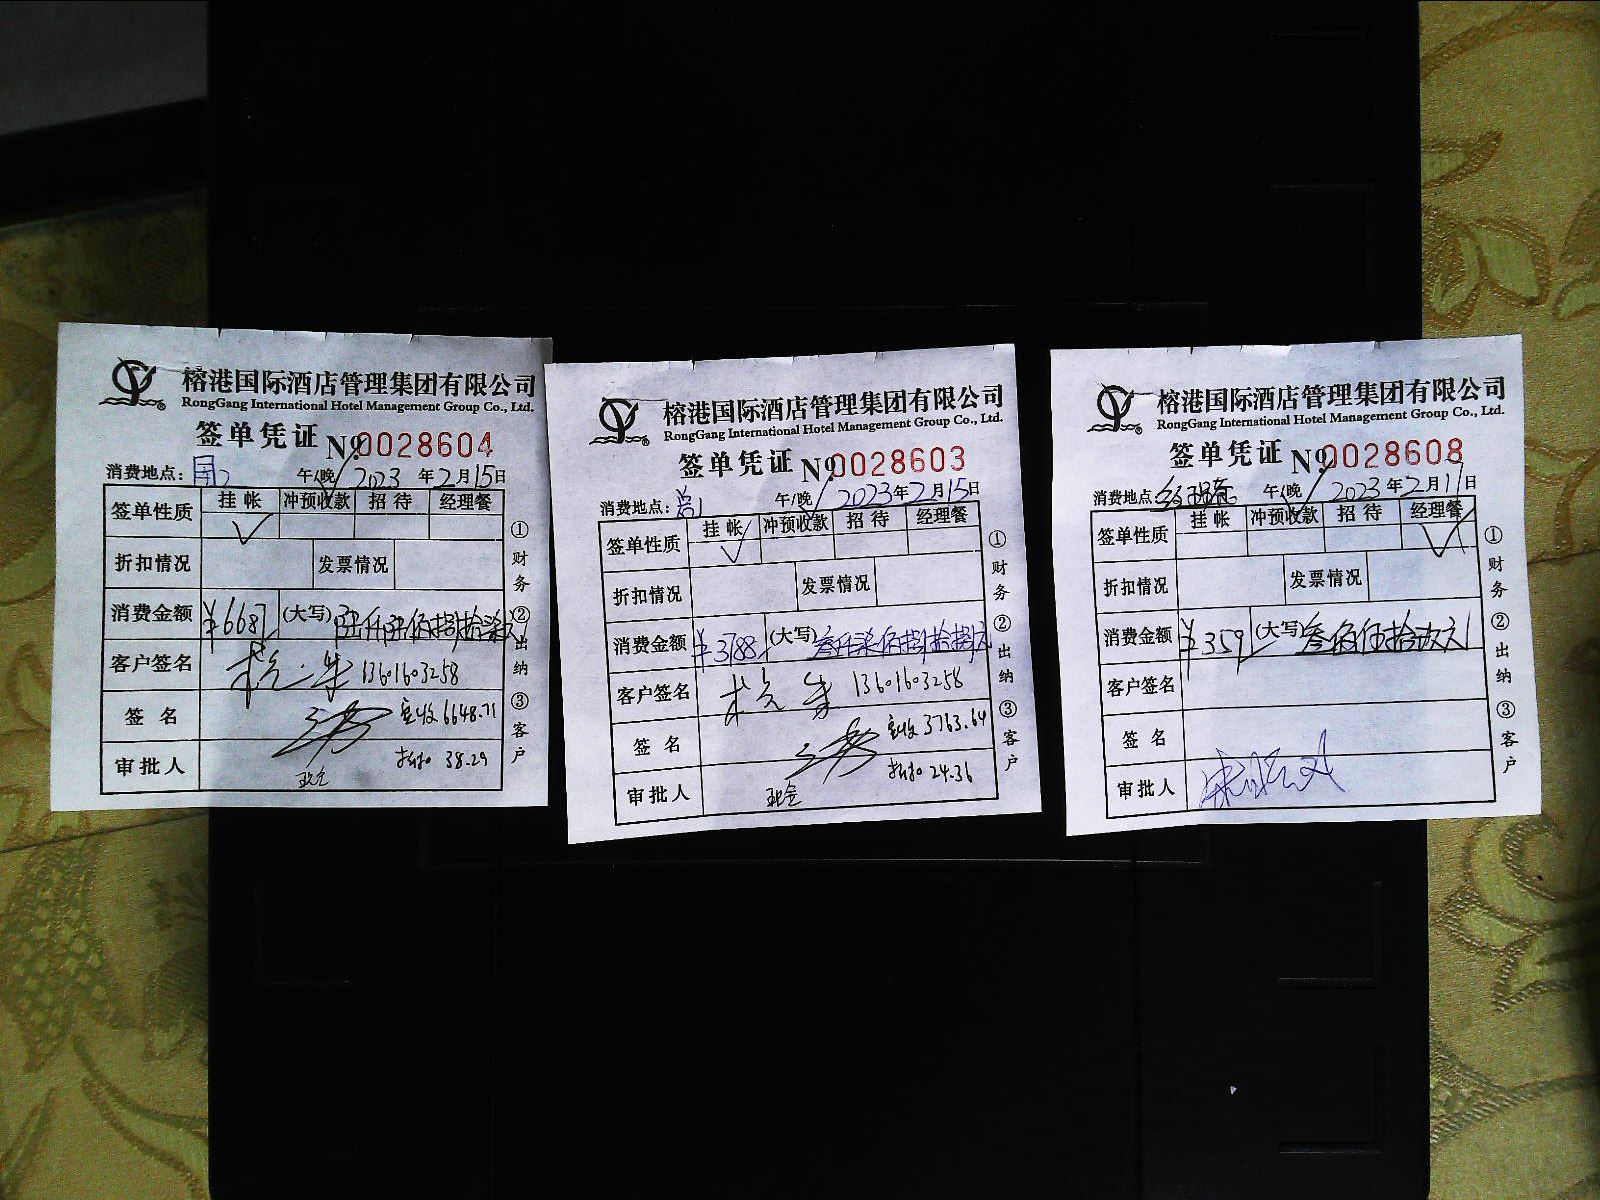 榕港国际酒店管理集团有限公司
RongGang International Hotel Management Group Co., Ltd.
签单凭证 № 0028604
消费地点： 午/晚 2023 年 2 月 15 日
签单性质 挂帐 冲预收款 招待 经理餐
折扣情况 发票情况
消费金额 ¥6687 (大写) 陆仟陆佰捌拾柒元
客户签名 13601603258
签名 实收 6648.71
审批人 折扣 38.29
现金
① 财务 ② 出纳 ③ 客户
榕港国际酒店管理集团有限公司
RongGang International Hotel Management Group Co., Ltd.
签单凭证 № 0028603
消费地点： 午/晚 2023 年 2 月 15 日
签单性质 挂帐 冲预收款 招待 经理餐
折扣情况 发票情况
消费金额 ¥3788 (大写) 叁仟柒佰捌拾捌元
客户签名 13601603258
签名 实收 3763.64
审批人 折扣 24.36
现金
① 财务 ② 出纳 ③ 客户
榕港国际酒店管理集团有限公司
RongGang International Hotel Management Group Co., Ltd.
签单凭证 № 0028608
消费地点： 午/晚 2023 年 2 月 11 日
签单性质 挂帐 冲预收款 招待 经理餐
折扣情况 发票情况
消费金额 ¥359 (大写) 叁佰伍拾玖元
客户签名
签名
审批人
① 财务 ② 出纳 ③ 客户